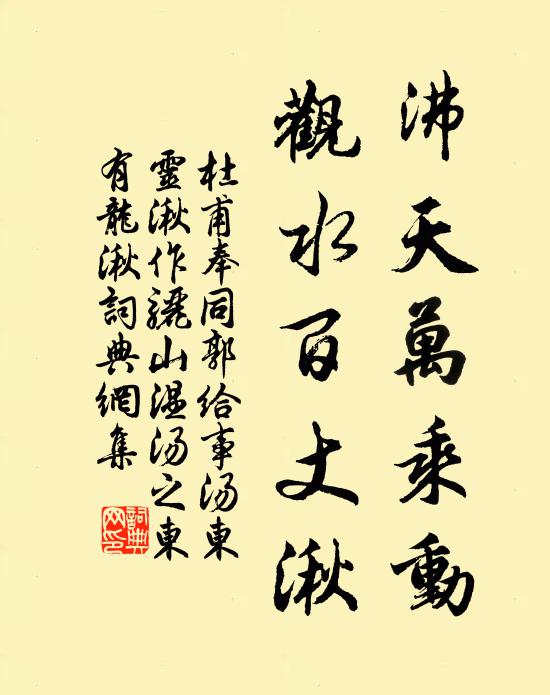 沸天萬乘動
觀水百丈湫
杜甫奉同郭給事湯東
靈湫作驪山溫湯之東
有龍湫詞典網集
詞典
网印